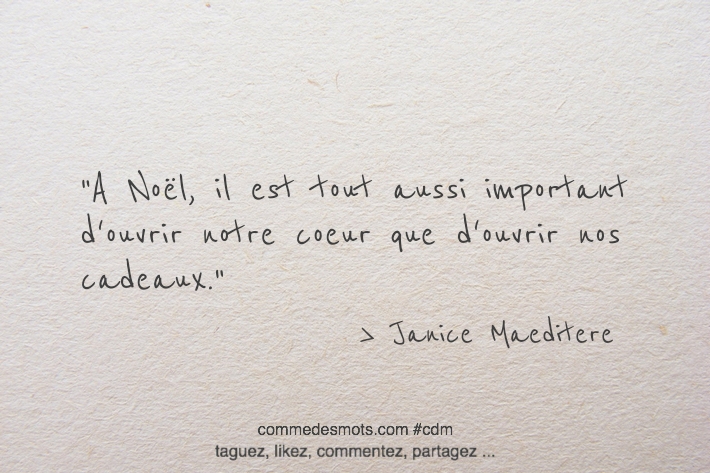 "A Noël, il est tout aussi important
d'ouvrir notre coeur que d'ouvrir nos
cadeaux."
> Janice Maeditere
commedesmots.com #cdm
taguez, likez, commentez, partagez ...